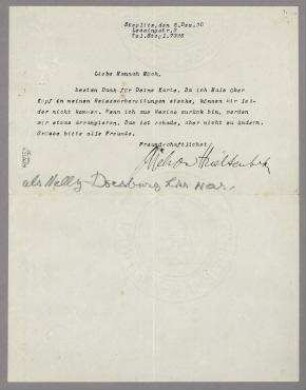 Steglitz, den 5.Dez.30
Tel.Stg.1.7998
Liebe Hannah Höch,
besten Dank für Deine Karte. Da ich Hals über
Kopf in meinen Reisevorbereitungen stecke, können wir lei-
der nicht kommen. Wenn ich aus Weine zurück bin, werden
wir etwas arrangieren. Das ist schade, aber nicht zu ändern.
Grüsse bitte alle Freunde.
Freundschaftlichst
als Nelly Doesburg hier war.